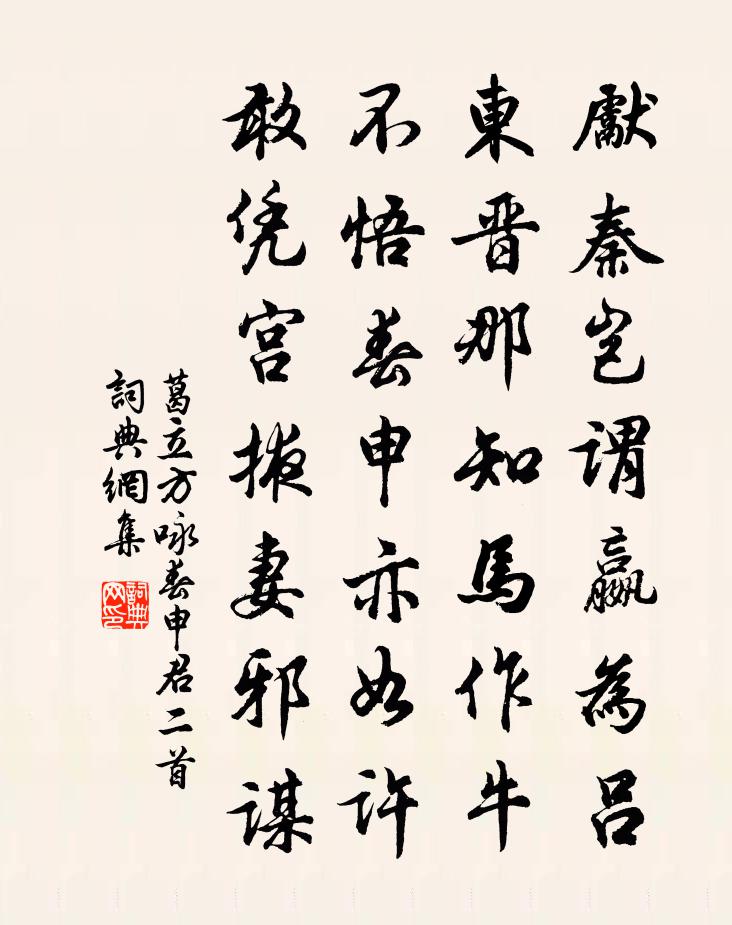 獻秦豈謂嬴為呂
東晋那知馬作牛
不悟春申亦如許
敢凭宮掖妻邪謀
葛立方咏春申君二首
詞典網集
詞典网印